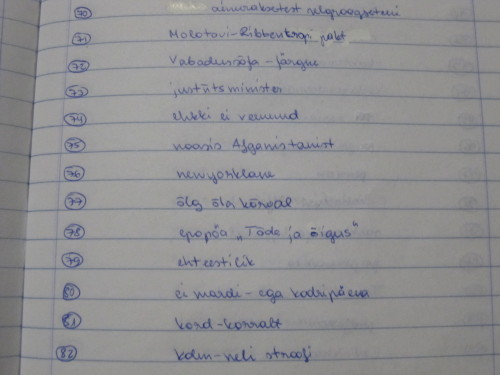 70
71 Molotovi-Ribbentropi pakt
72 Vabadussõja-järgne
73 justiitsminister
74 ehkki ei veennud
75 naasis Afganistanist
76 newyorklane
77 õlg õla kõrval
78 epopöa „Tõde ja õigus"
79 ehteestilik
80 ei mardi- ega kadripäeva
81 kord-korralt
82 kolm-neli stroofi